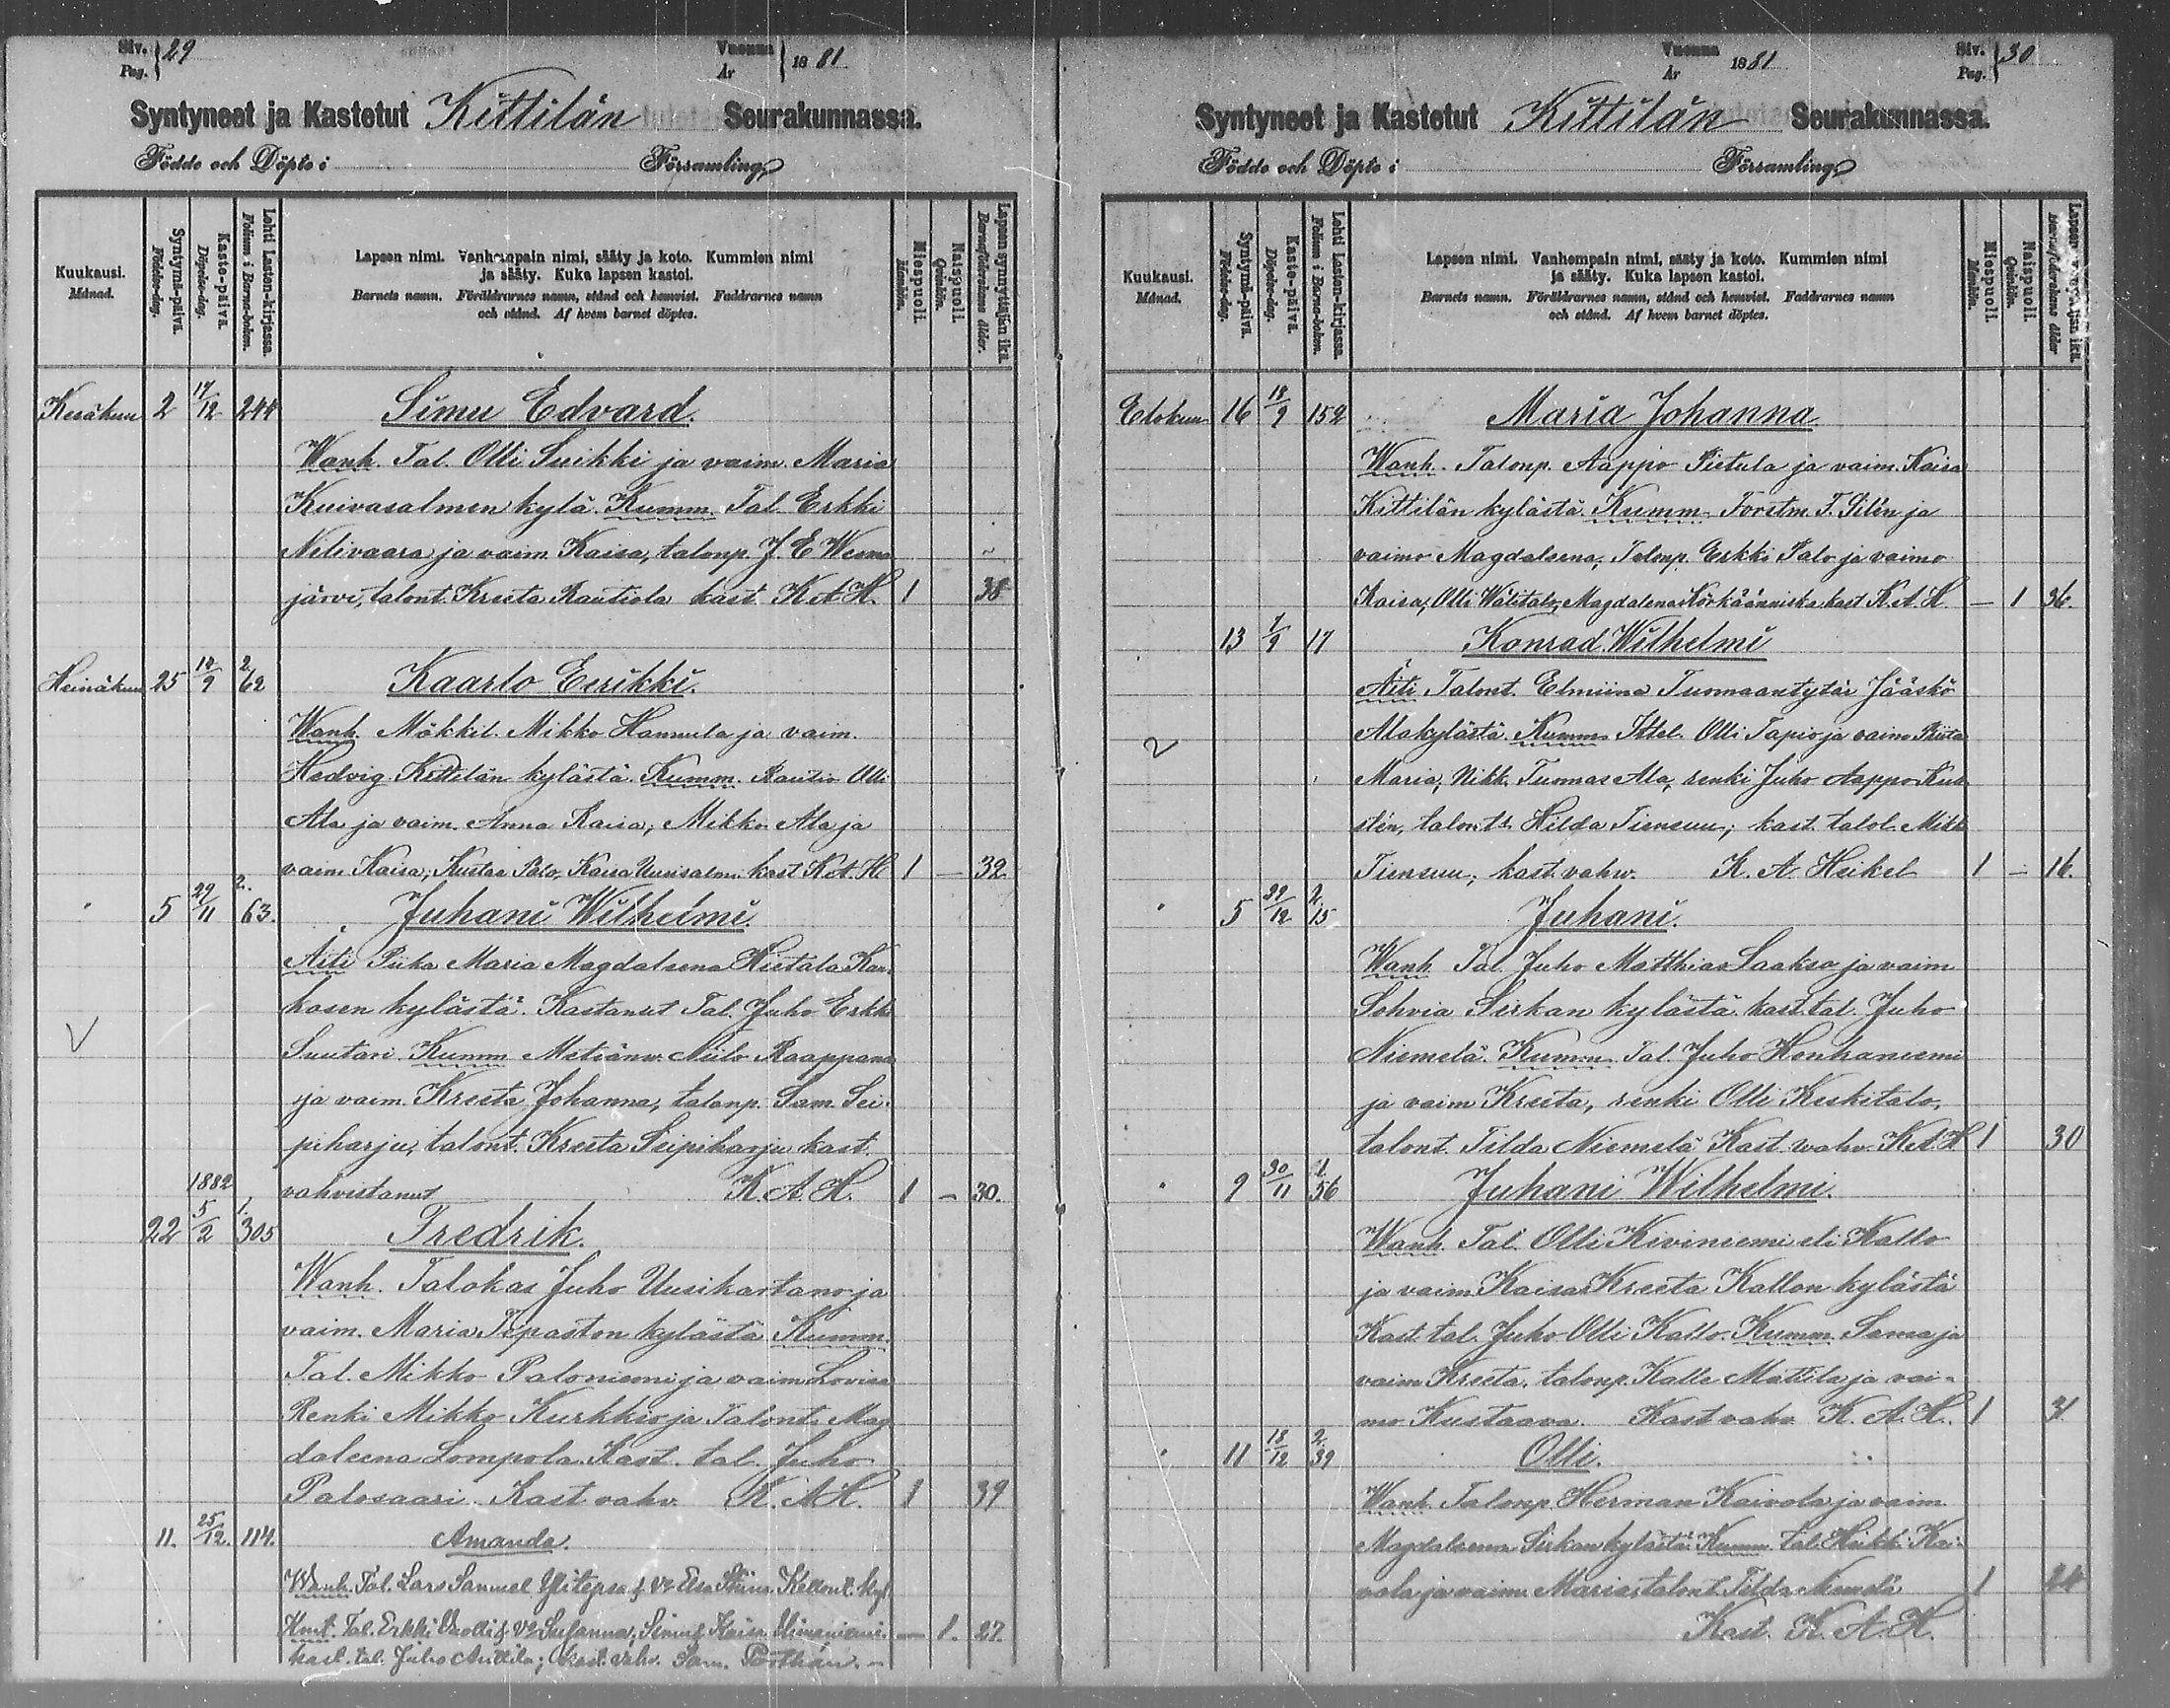 Siv. 29
Pag.
Vuonna 1881
År
Syntyneet ja Kastetut Kittilän Seurakunnassa.
Födde och Döpte i Församling
Kuukausi.
Månad.
Syntymä-päivä.
Födelse-dag.
Kaste-päivä.
Döpelse-dag.
Lehti Lasten-kirjassa.
Folium i Barna-boken.
Lapsen nimi. Vanhempain nimi, sääty ja koto. Kummien nimi
ja sääty. Kuka lapsen kastoi.
Barnets namn. Föräldrarnes namn, stånd och hemvist. Faddrarnes namn
och stånd. Af hvem barnet döptes.
Miespuoli.
Mankön.
Naispuoli.
Qvinkön.
Lapsen synnyttäjän ikä.
Barnaföderskans ålder.
Kesäkuu 2 17/12 244 Simu Edvard.
Wanh. Tal. Olli Suikki ja vaim. Maria
Kuivasalmen kylä. Kumm. Tal. Erkki
Nilivaara ja vaim. Kaisa, talonp. J. E. Wesma
järvi, talont. Kreeta Rautiola kast. K A H. 1 38
Heinäkuu 25 18/9 2. 62 Kaarlo Eerikki.
Wanh. Mökkil. Mikko Hannula ja vaim.
Hedvig Kittilän kylästä. Kumm. Rautio Olli
Ala ja vaim. Anna Kaisa, Mikko Ala ja
vaim Kaisa, Kustaa Palo, Kaisa Uusisalmi kast K A. H 1 — 32.
" 5 29/11 2. 63. Juhani Wilhelmi.
Äiti Piika Maria Magdaleena Hietala Kau-
kosen kylästä. Kastanut Tal. Juho Erkki
Suutari. Kumm Metsänv. Niilo Raappana
ja vaim. Kreeta Johanna, talonp. Sam. Sei-
piharju, talont. Kreeta Seipiharju kast.
vahvistanut K. A. H. 1 — 30.
22 1882 5/2 1. 305 Fredrik.
Wanh. Talokas Juho Uusikartano ja
vaim. Maria Tepaston kylästä Kumm.
Tal. Mikko Paloniemi ja vaim Lovisa
Renki Mikko Kurkkio ja Talont. Mag
daleena Lompola. Kast. tal. Juho
Palosaari. Kast vahv. K. A H. 1 39
11. 25/12. 114. Amanda.
Wanh. Tal. Lars Samuel Ylitepsa & Vo Elsa Stiina Kellont. kyl
Kmt. Tal. Erkki Vuolli & Vo Susanna; Simu & Kaisa Niemi. — 1. 27.
kast. tal. Juho Mettila; kast. vahv. Sam. Porthan. —
Siv. 30
Pag.
Vuonna 1881
År
Syntyneet ja Kastetut Kittilän Seurakunnassa.
Födde och Döpte i Församling
Kuukausi.
Månad.
Syntymä-päivä.
Födelse-dag.
Kaste-päivä.
Döpelse-dag.
Lehti Lasten-kirjassa.
Folium i Barna-boken.
Lapsen nimi. Vanhempain nimi, sääty ja koto. Kummien nimi
ja sääty. Kuka lapsen kastoi.
Barnets namn. Föräldrarnes namn, stånd och hemvist. Faddrarnes namn
och stånd. Af hvem barnet döptes.
Miespuoli.
Mankön.
Naispuoli.
Qvinkön.
Elokuu 16 18/9 152 Maria Johanna
Wanh. Talonp. Aappo Pietula ja vaim. Kaisa
Kittilän kylästä. Kumm. Forstm. F. Silén ja
vaimo Magdaleena, Talonp. Erkki Palo ja vaimo
Kaisa; Olli Välitalo, Magdalena Körkäänniska kast K. A. H. — 1 36.
13 1/9 17 Konrad Wilhelmi
Äiti Talont. Elmiina Tuomaantytär Jääskö
Alakylästä Kumm. Ittel. Olli Tapio ja vaimo Riita
Maria, Nikk. Tuomas Ala, renki Juho Aappo Kus-
stén, talontt. Hilda Tiensuu; kast. talol. Mikk
Tiensuu; kast. vahw. K. A. Heikel 1 — 16.
" 5 29/12 2. 15 Juhani.
Wanh. Tal. Juho Matthias Laakso ja vaim
Sohvia Sirkan kylästä. kast. tal. Juho
Niemelä. Kumm. Tal. Juho Honkaniemi
ja vaim Kreeta, renki Olli Keskitalo,
talont. Tilda Niemelä Kast. wahv. K A H 1 30
" 9 30/11 1. 56 Juhani Wilhelmi.
Wanh. Tal. Olli Kiviniemi eli Kallo
ja vaim Kaisa Kreeta Kallon kylästä
Kast. tal. Juho Olli Kallo. Kumm. Sama ja
vaim Kreeta, talonp. Kalle Mattila ja vai-
mo Kustaava. Kast vahv K. A. H. 1 31
" 11 18/12 2. 39 Olli.
Wanh. Talonp. Herman Kaivola ja vaim.
Magdaleena Sirkan kylästä. Kumm. tal. Heikki Kai-
vola ja vaim. Maria, talont. Tilda Niemelä 1 24
Kast. K. A. H.